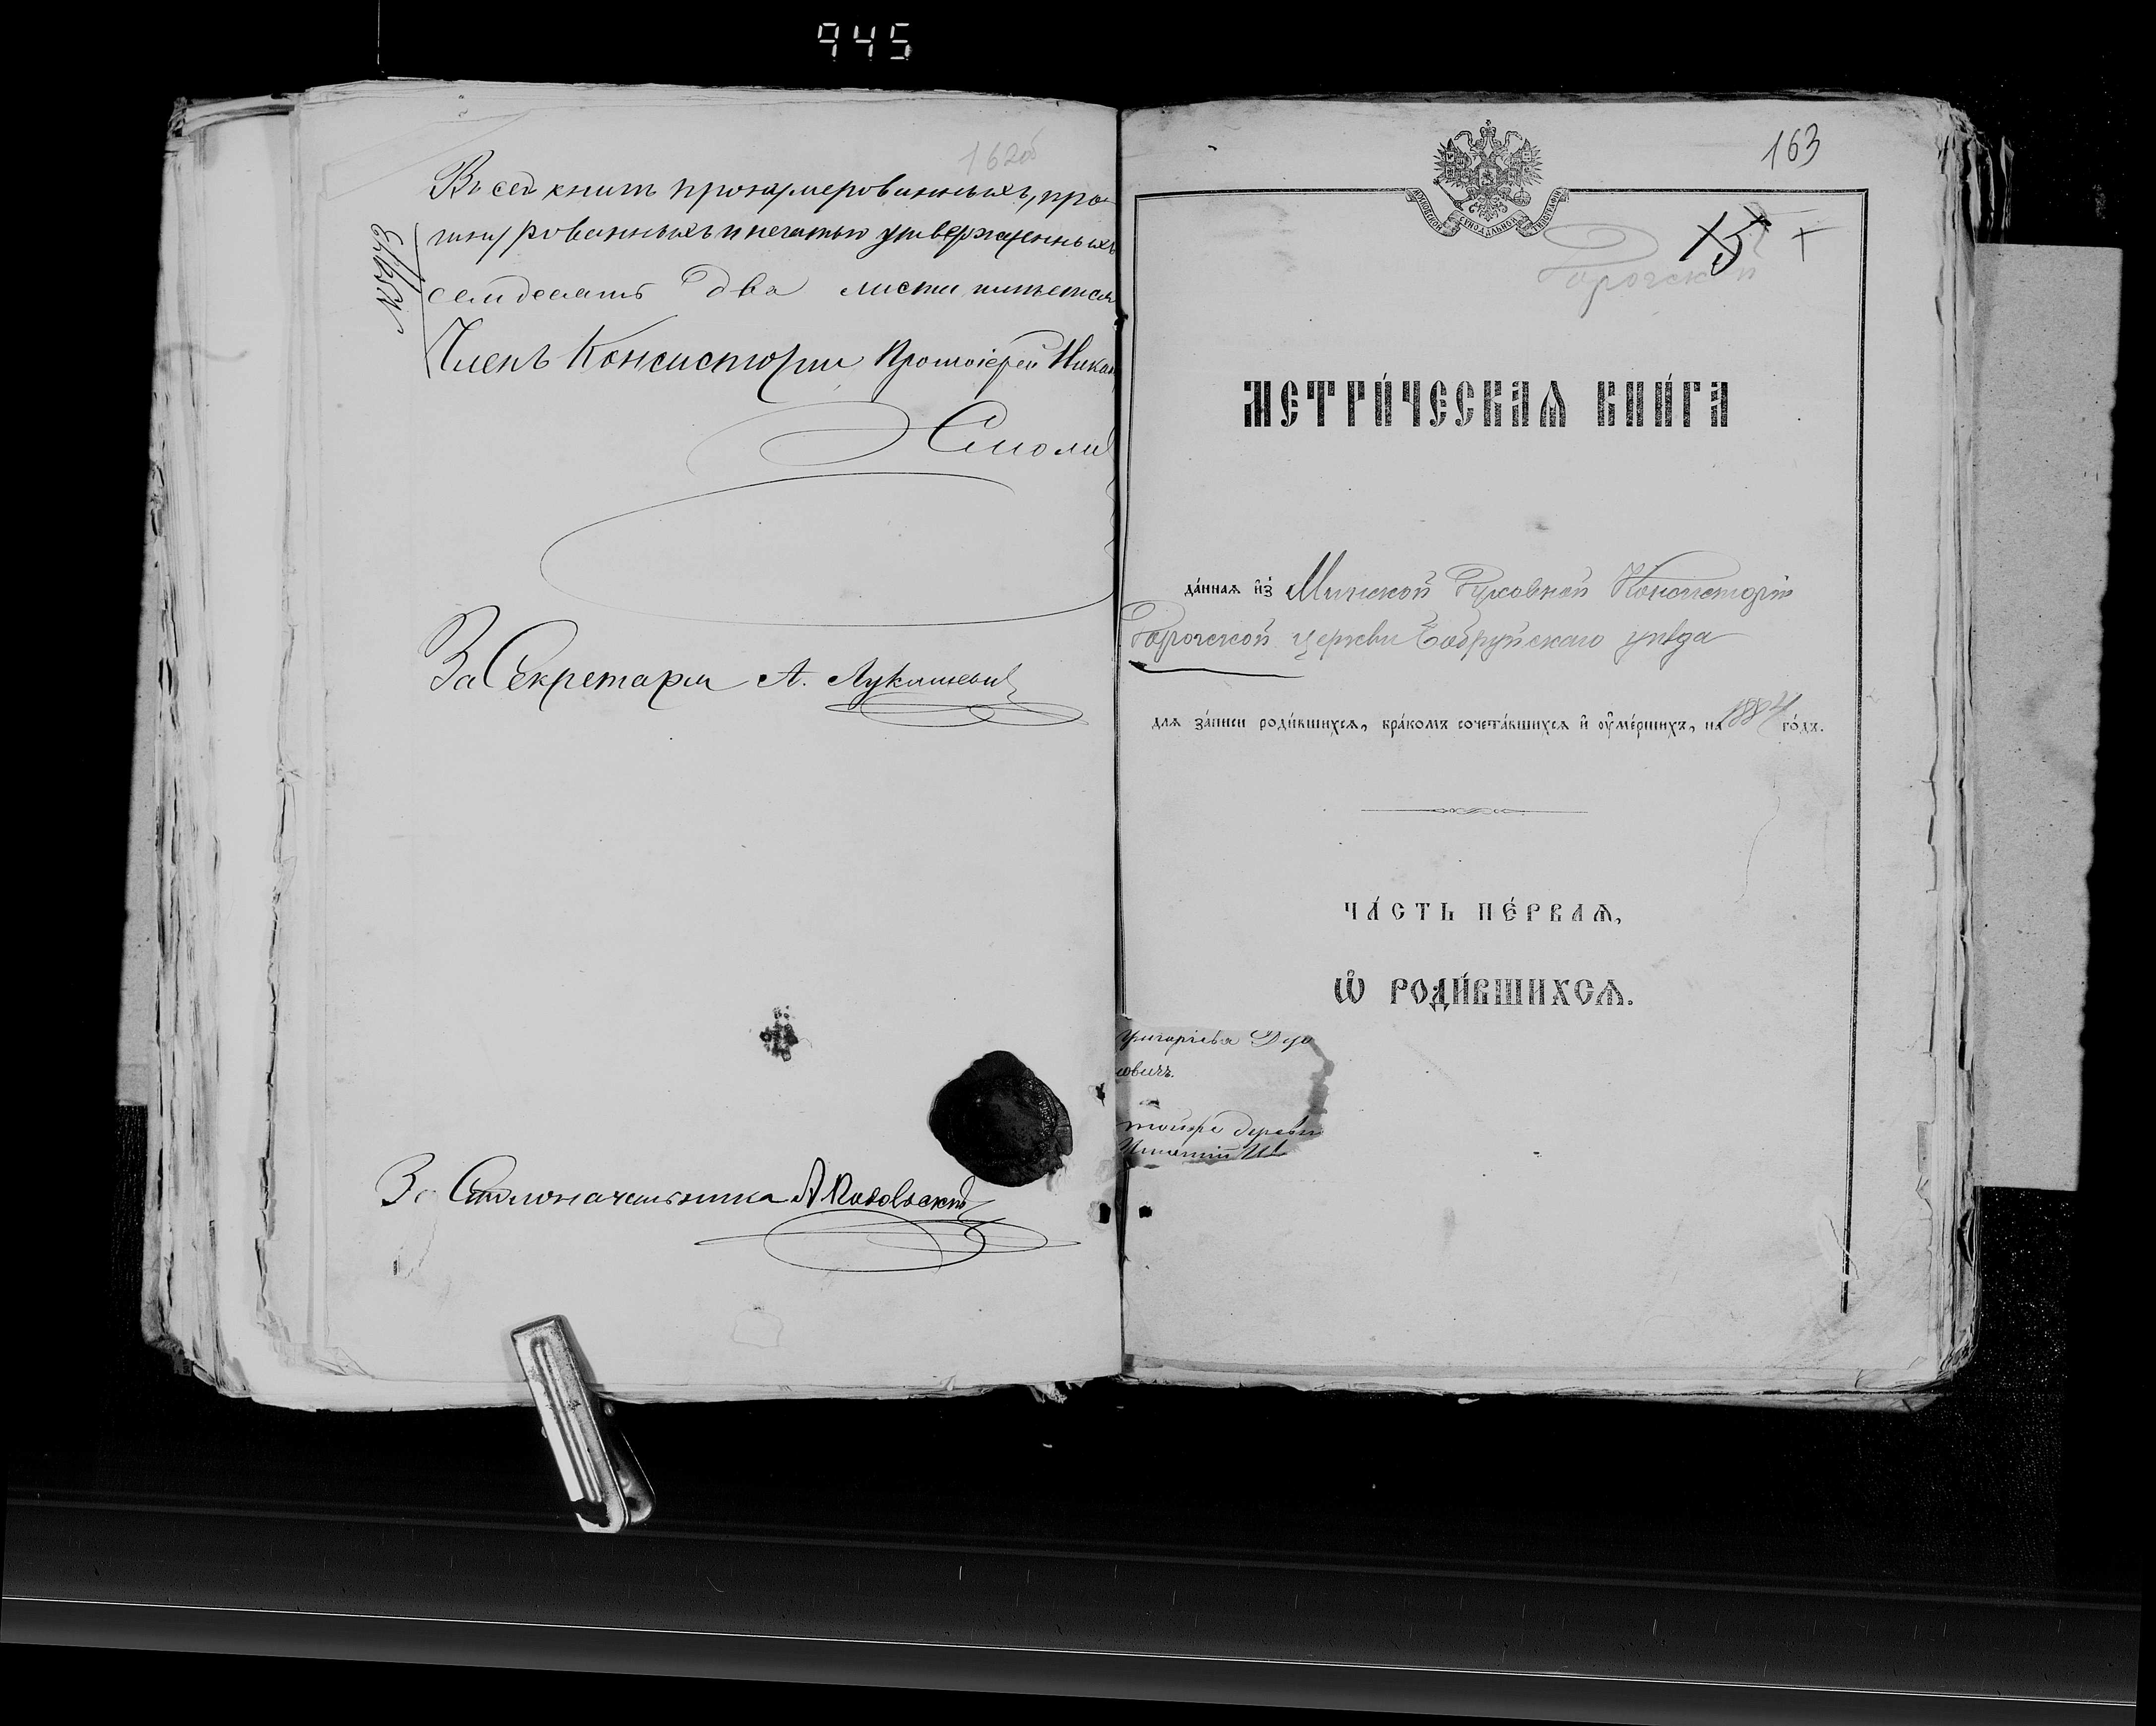 945
162об
Въ сей книгѣ пронумерованныхъ, про
шнурованныхъ и печатью утвержденныхъ
семдесятъ два листа имѣется
№ 5973
Членъ Консисторіи Протоіерей Никан
Смоли
За Секретаря А. Лукашевичъ
За Столоначальника А
163
МОСКОВСКОЙ СѴНОДАЛЬНОЙ ТѴПОГРАФІИ
15 +
Горочской
МЕТРИ́ЧЕСКАѦ КНИ́ГА
да́ннаѧ и҆з̾ Минской Духовной Консисторіи
Горочской церкви Бобруйскаго уѣзда
длѧ за́писи роди́вшихсѧ, бра́комъ сочета́вшихсѧ и҆ ᲂу҆ме́ршихъ, на 1884 го́дъ.
ЧА́СТЬ ПЕ́РВАѦ,
Ѽ РОДИ́ВШИХСѦ.
Григоріева
овичъ.
деревни